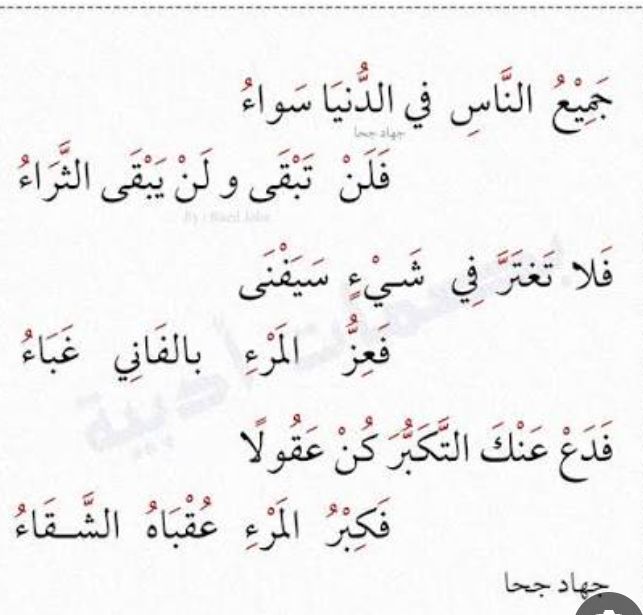 جَمِيْعُ النَّاسِ في الدُّنيَا سَواءُ
جهاد جحا
فَلَنْ تَبْقَى و لَنْ يَبْقَى الثَّرَاءُ
فَلا تَغتَرَّ فِي شَيْءٍ سَيَفْنَى
فَعِزُّ المَرْءِ بالفَانِي غَبَاءُ
بصمات أدبية
فَدَعْ عَنْكَ التَّكَبُّرَ كُنْ عَقُولًا
فَكِبْرُ المَرْءِ عُقْبَاهُ الشَّـقَاءُ
جهاد جحا